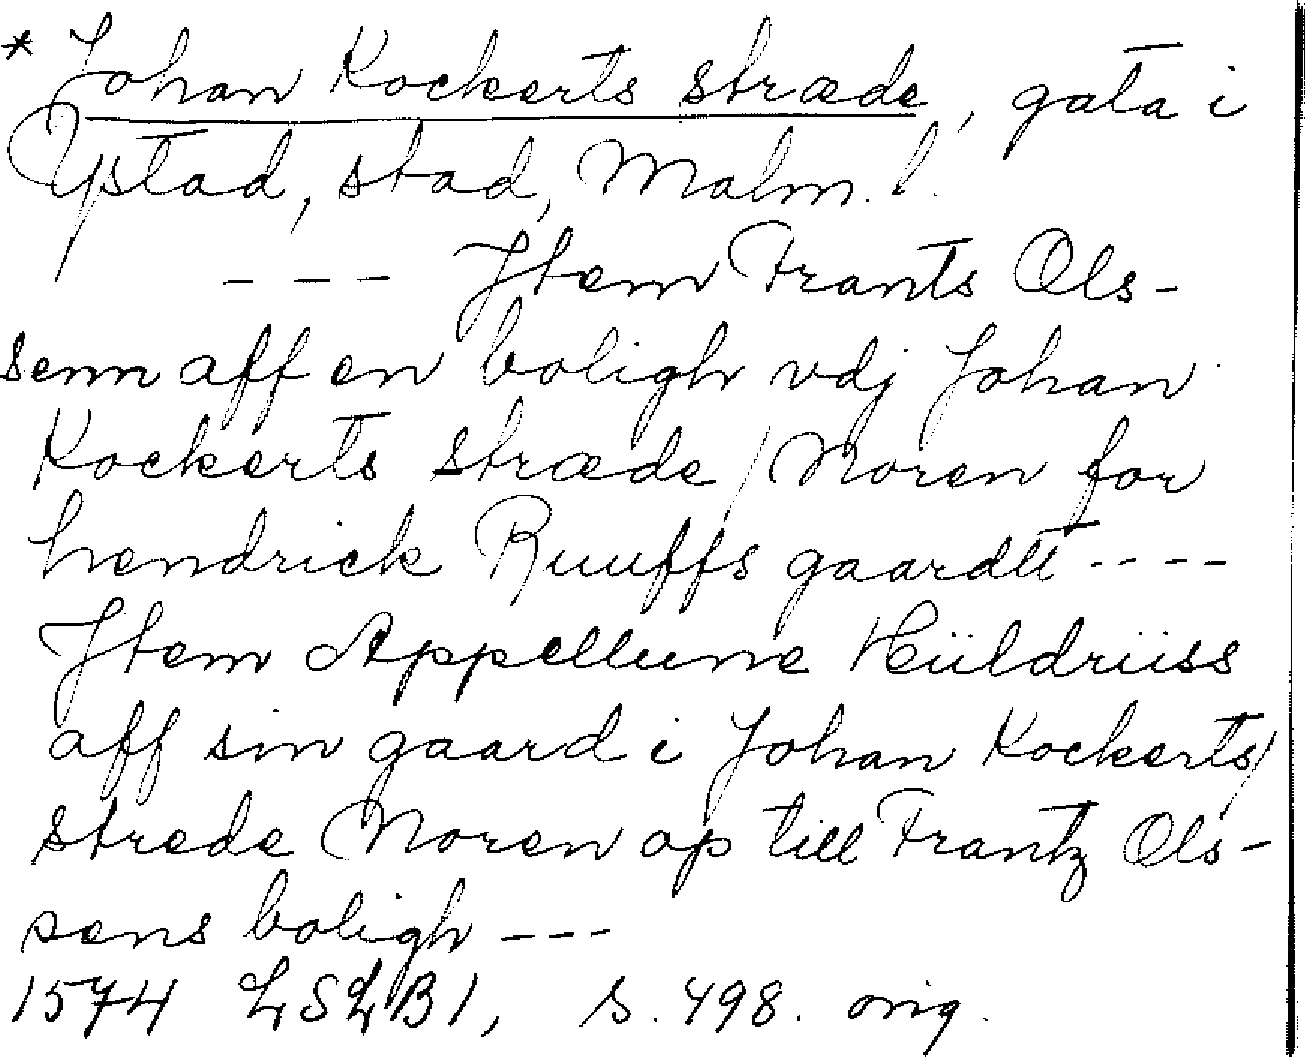 * Johan Kockerts stræde, gata i
Ystad, stad, Malm. l.
--- Jtem Frants Ols-
senn aff en boligh vdj Johan
Kockerts stræde / Noren for
hendrick Ruuffs gaardtt ----
Jtem Appellune Hüldrüss
aff sin gaard i Johan Kockerts /
strede Noren op till Frantz Ols-
sens boligh ---
1574 LSLB 1, s. 498. orig.